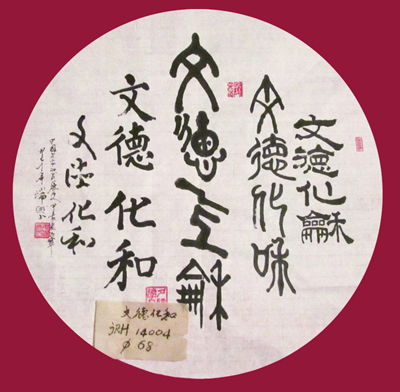 文德化龢
文德化味
文德化龢
文德化和
文德化和
文德化和
JRH 14004
φ 68